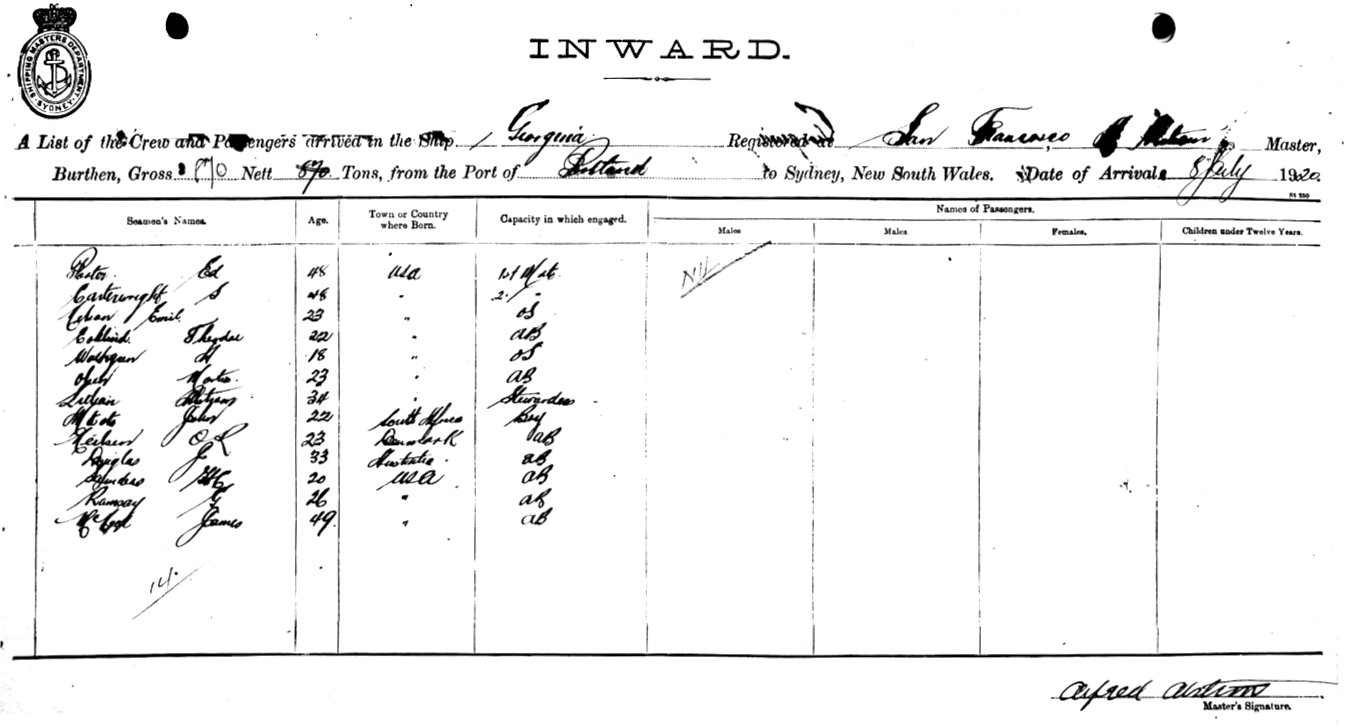 SHIPPING MASTERS DEPARTMENT SYDNEY
INWARD.
A List of the Crew and Passengers arrived in the Ship Georgina Registered at San Francisco A Master,
Burthen, Gross 870 Nett 870 Tons, from the Port of Portland to Sydney, New South Wales. Date of Arrival 8 July 1920
Seamen's Names. Age. Town or Country where Born. Capacity in which engaged. Names of Passengers.
Males Males Females. Children under Twelve Years.
Ed 48 USA 1st Mate Nil
Cartewright S 48 " 2 / "
Emil 23 " OS
Theodore 22 " AB
H 18 " OS
23 " AB
34 " Stewardess
John 22 South Africa Boy
Neilsen O L 23 Denmark AB
Douglas J 33 Australia AB
Saunders 20 USA AB
Ramsay G 26 " AB
James 49 " AB
14.
Alfred
Master's Signature.